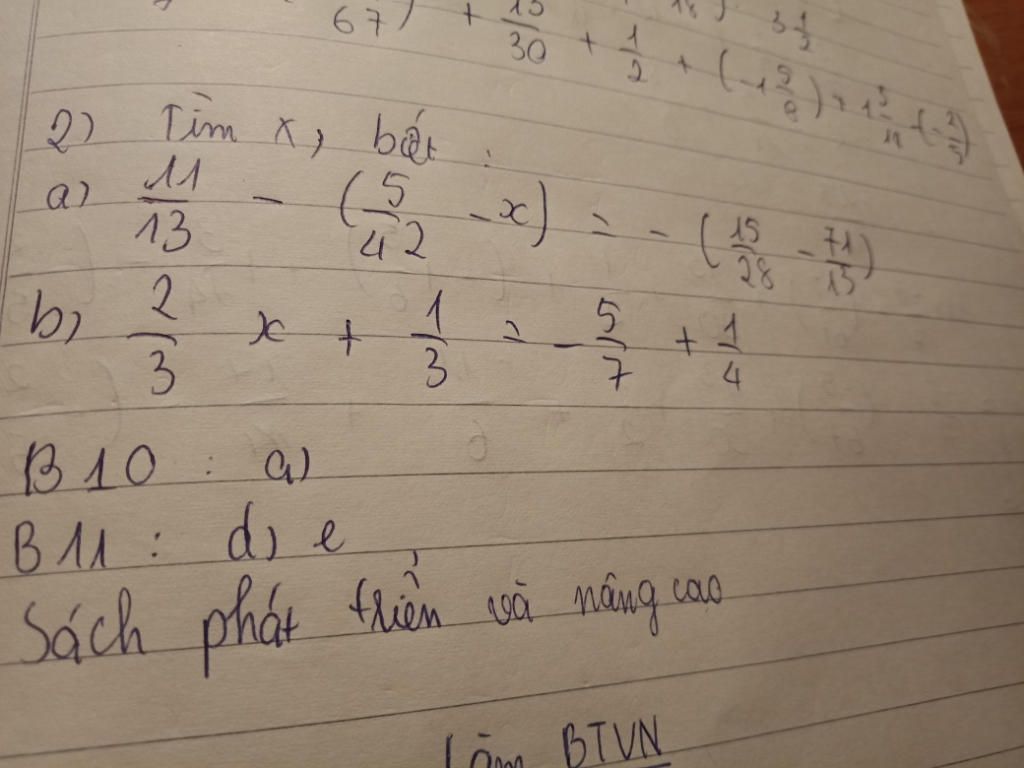 67) + 15/30 + 1/2 + (-1 
3 1/2
2) Tìm x, biết :
a) 11/13 - (5/42 - x) = - (15/28 - 71/13)
b) 2/3 x + 1/3 = - 5/7 + 1/4
B10 : a)
B11 : d) e
Sách phát triển và nâng cao
Làm BTVN